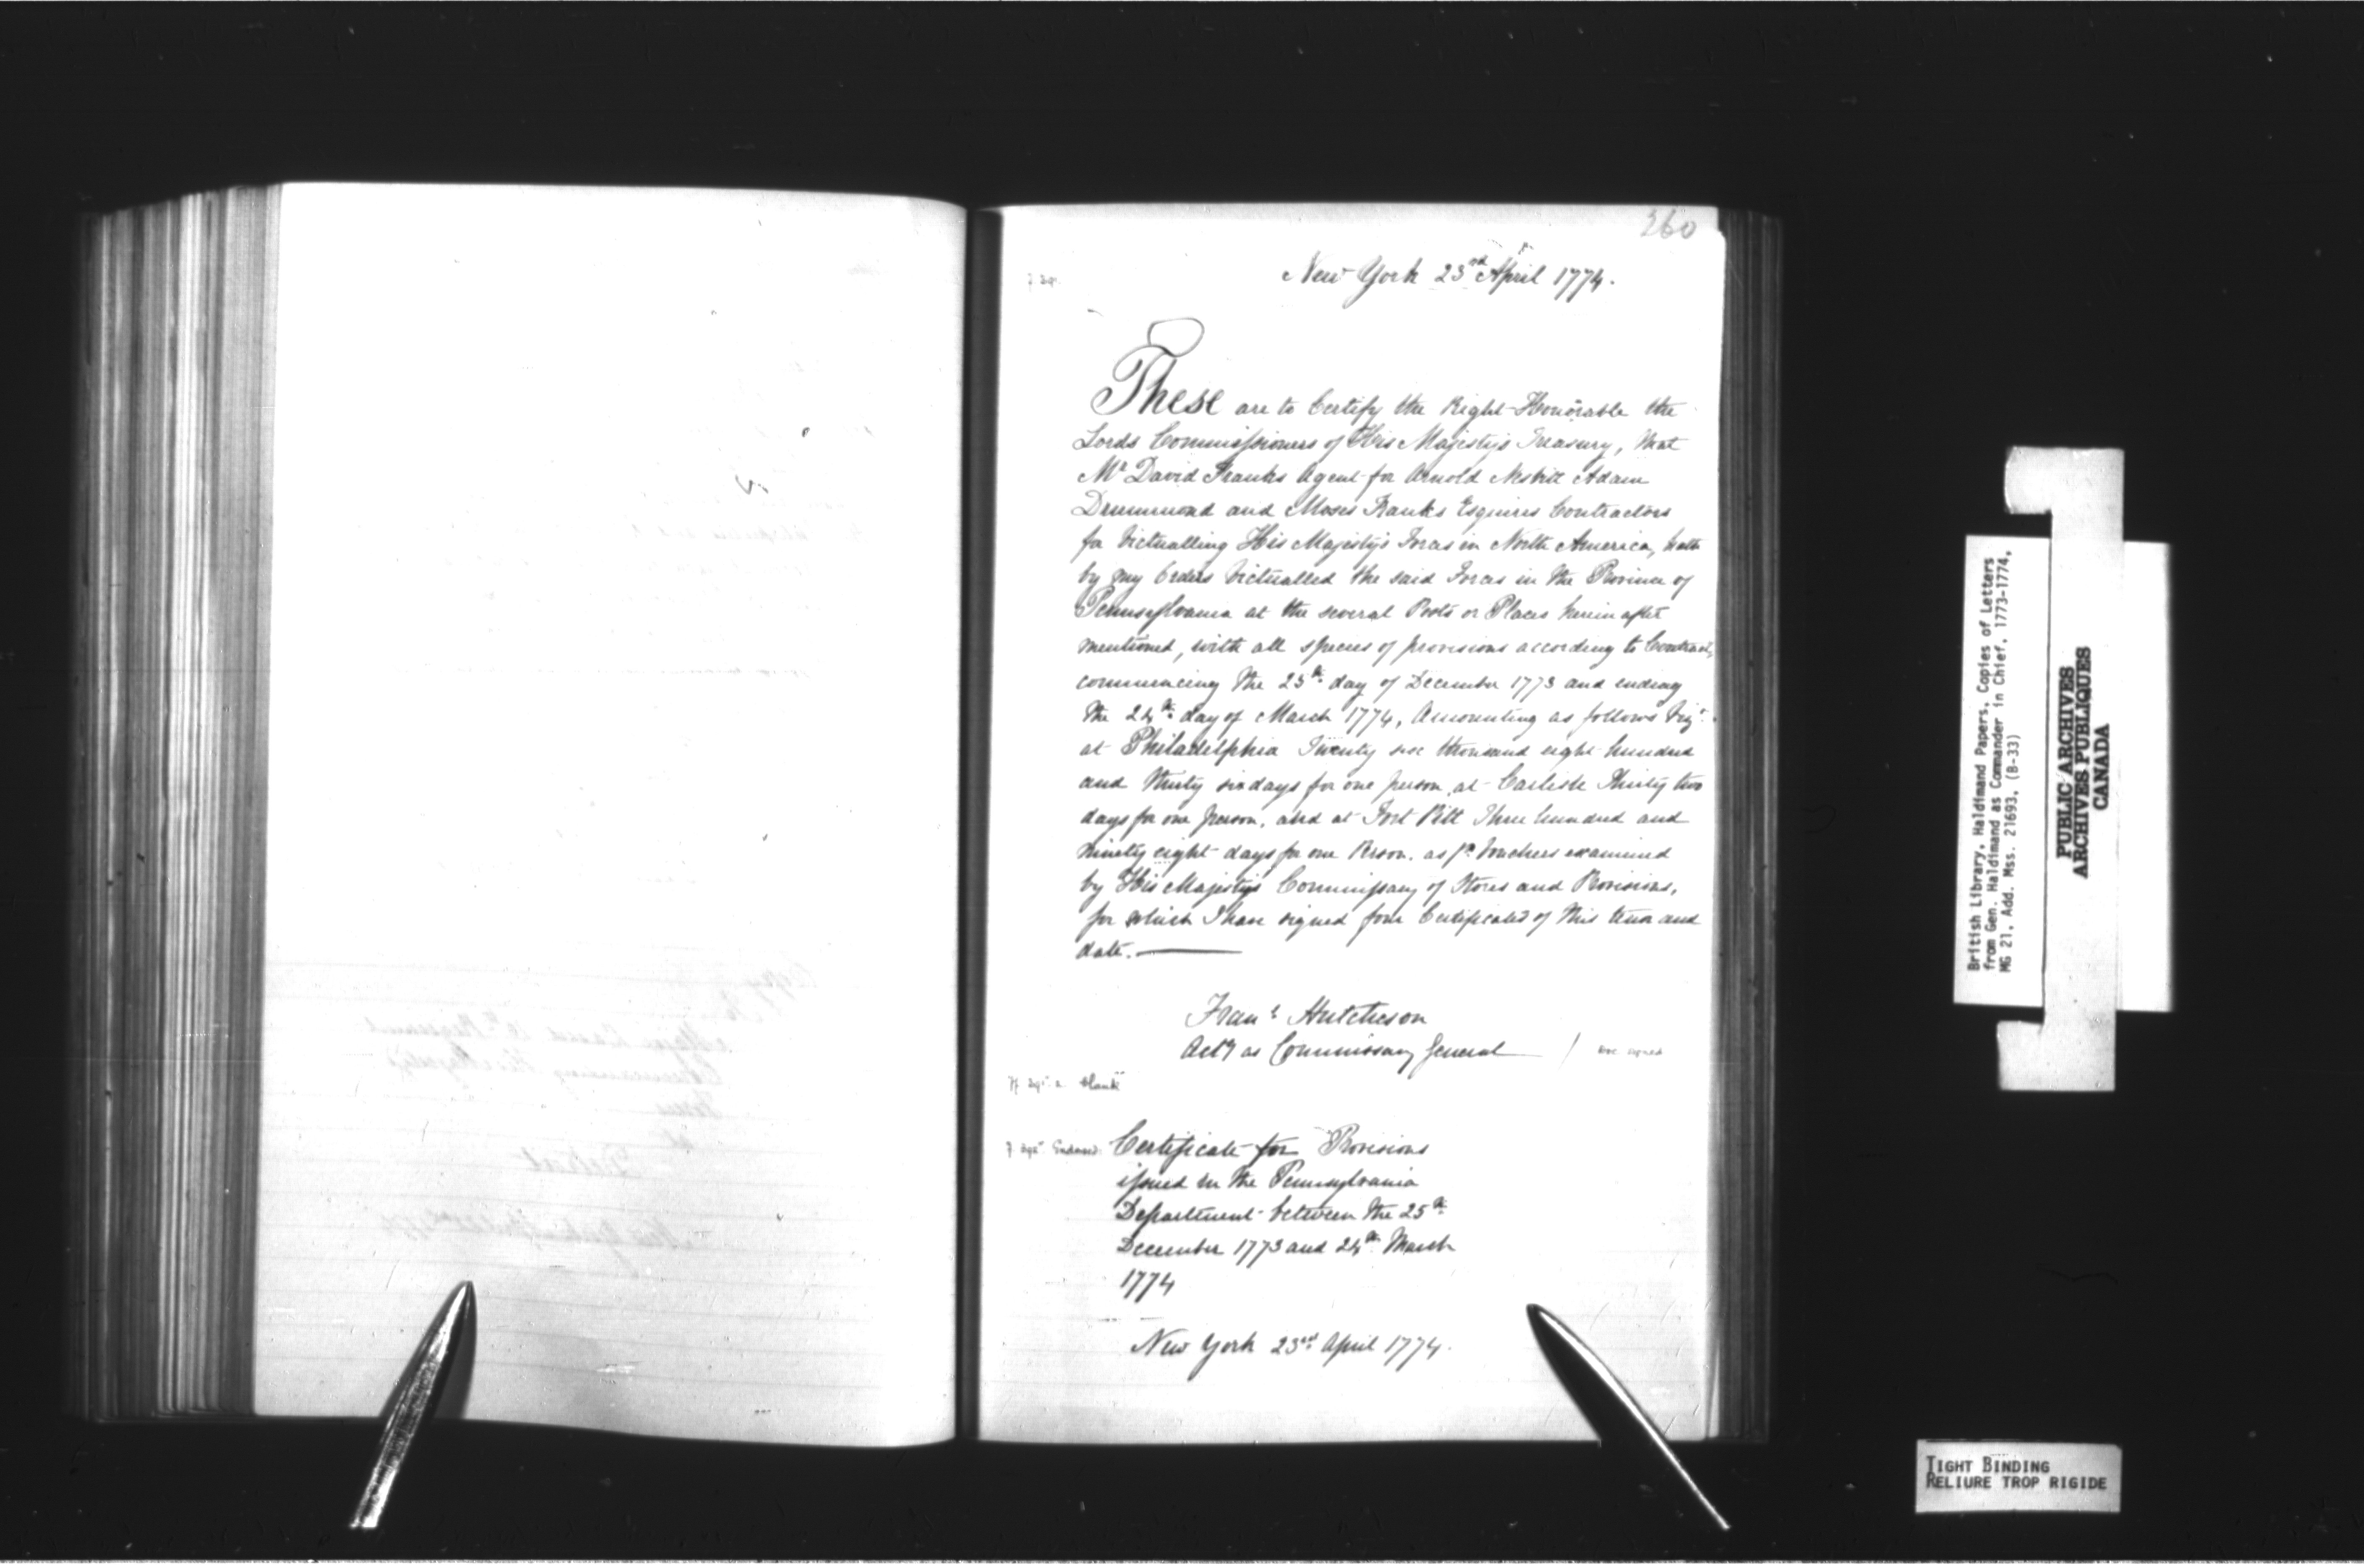 260
New York 23rd April 1774.
These are to Certify the Right Honorable the
Lords Commissioners of His Majestys Treasury, that
Mr David Franks Agent for Arnold Nesbitt Adam
Drummond and Moses Franks Esquires Contractors
for Victualling His Majesty's Forces in North America, hath
by my Orders Victualled the said Forces in the Province of
Pennsylvania at the several Posts or Places herein after
mentioned, with all species of provisions according to Contract,
commencing the 25th day of December 1773 and ending
the 24th day of March 1774, Amounting as follows Vizt.
at Philadelphia Twenty six thousand eight hundred
and thirty six days for one person, at Carlisle Thirty two
days for one person, and at Fort Pitt Three hundred and
ninety eight days for one Person, as pr. Vouchers examined
by His Majesty's Commissary of Stores and Provisions,
for which I have signed four Certificates of this tenor and
date.
Frans Hutcheson
Actg as Commissary General
blank
Endorsed. Certificate for Provisions
issued in the Pennsylvania
Department between the 25th
December 1773 and 24th March
1774
New York 23rd April 1774.
British Library, Haldimand Papers, Copies of Letters
from Gen. Haldimand as Commander in Chief, 1773-1774,
MG 21, Add. Mss. 21693, (B-33)
PUBLIC ARCHIVES
ARCHIVES PUBLIQUES
CANADA
TIGHT BINDING
RELIURE TROP RIGIDE